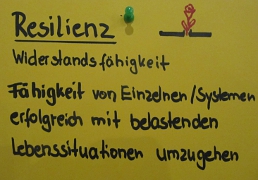 Resilienz
Widerstandsfähigkeit
Fähigkeit von Einzelnen/Systemen
erfolgreich mit belastenden
Lebenssituationen umzugehen